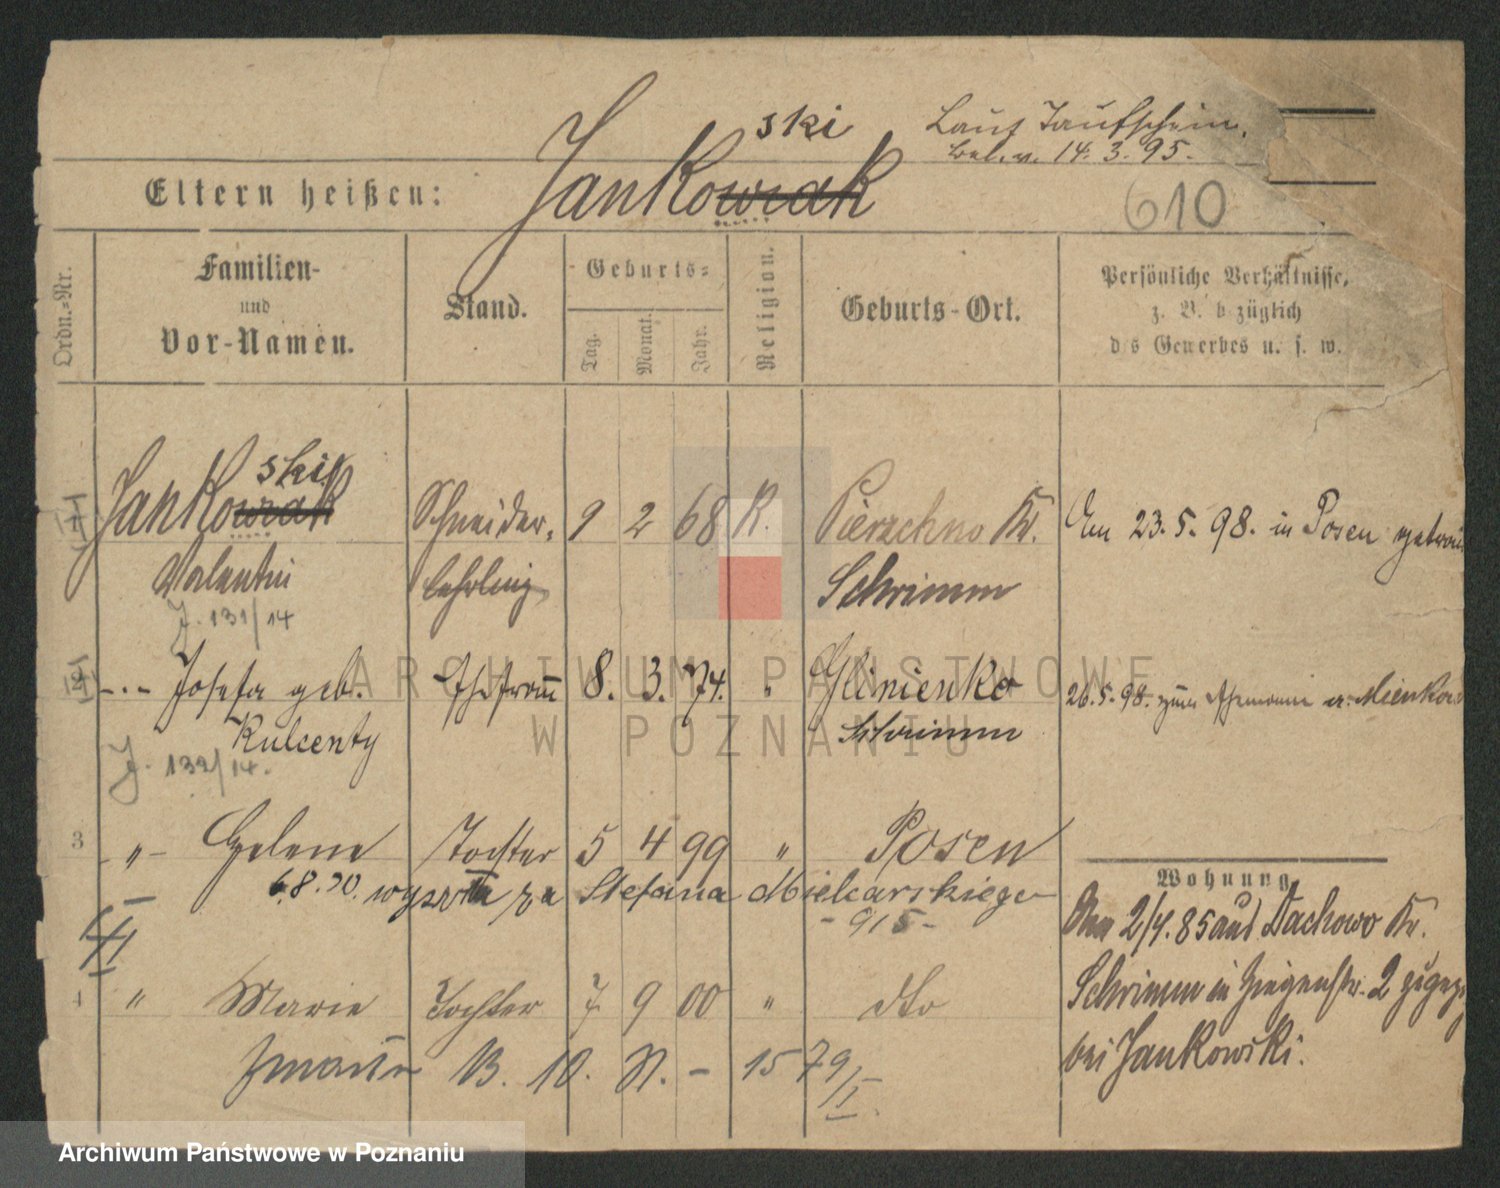 ski Laut Taufschein,
Bel. v. 14. 3. 95.
Eltern heißen: Jankowiak
610
Ordn.-Nr. Familien- und Vor-Namen. Stand. Geburts- Tag. Monat. Jahr. Religion. Geburts-Ort. Persönliche Verhältnisse, z. B. bezüglich des Gewerbes u. s. w.
ski
1 Jankowiak Schneider- 9 2 68 K. Pierzchno Kr. Am 23. 5. 98. in Posen getraut
Valentin lehrling Schrimm
J. 131/14
2 -..- Josefa geb. Ehefrau 8. 3. 74. " Glinienko 26. 5. 98. zum Ehemann
Kulcenty Schrimm
J. 132/14.
3 -"- Helene Tochter 5 4 99 " Posen
6.8.20. wyszła za Stefana Mielcarskiego
- 915 -
Wohnung
Am 2/4. 85 aus Dachowo Kr.
4 " Marie Tochter 7 9 00 " dto
Schrimm in Ziegenstr. 2 zugez.
bei Jankowski.
Zmarła 13. 10. - 15 79/I
ARCHIWUM PAŃSTWOWE
W POZNANIU
Archiwum Państwowe w Poznaniu